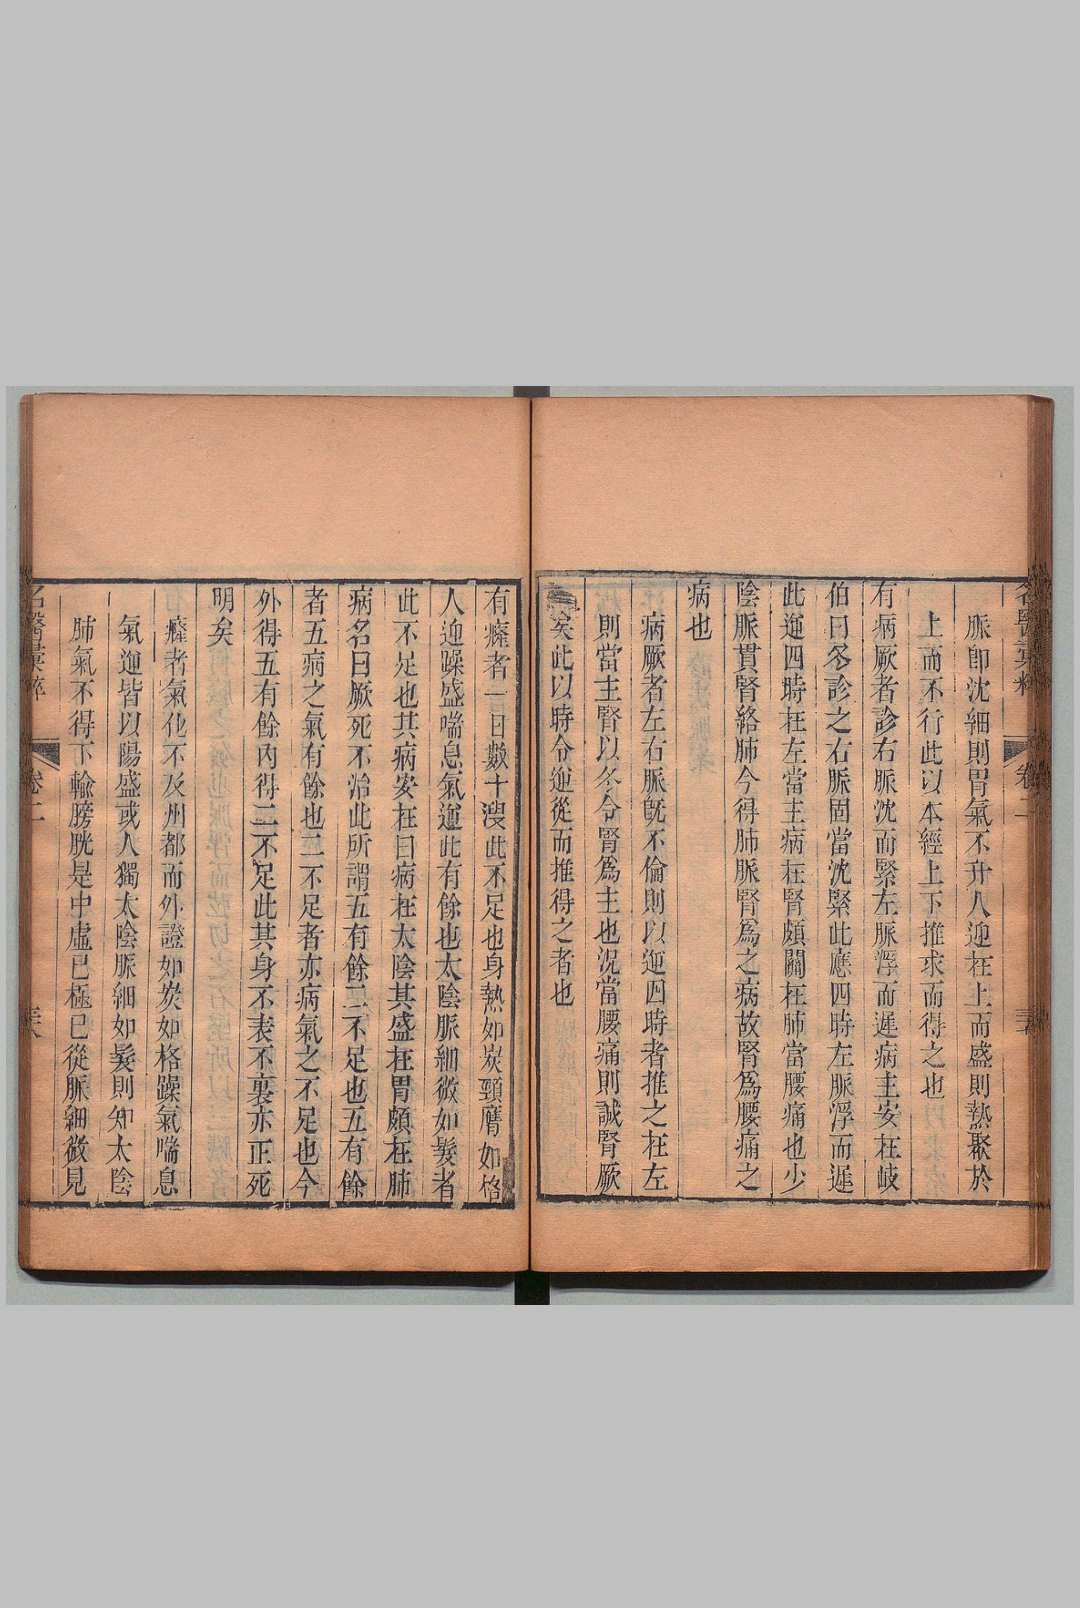 脈卽沈細則胃氣不升人迎在上而盛則熱聚於
上而不行此以本經上下推求而得之也
有病厥者診右脈沈而緊左脈浮而遲病主安在岐
伯曰冬診之右脈固當沈緊此應四時左脈浮而遲
此逆四時在左當主病在腎頗關在肺當腰痛也少
陰脈貫腎絡肺今得肺脈腎爲之病故腎爲腰痛之
病也
病厥者左右脈旣不倫則以逆四時者推之在左
則當主腎以冬令腎爲主也況當腰痛則誠腎厥
矣此以時令逆從而推得之者也
有癃者一日數十溲此不足也身熱如炭頸膺如格
人迎躁盛喘息氣逆此有餘也太陰脈細微如髮者
此不足也其病安在曰病在太陰其盛在胃頗在肺
病名曰厥死不治此所謂五有餘二不足也五有餘
者五病之氣有餘也二不足者亦病氣之不足也今
外得五有餘內得二不足此其身不表不裏亦正死
明矣
癃者氣化不及州都而外證如炭如格躁氣喘息
氣逆皆以陽盛或人獨太陰脈細如髮則知太陰
肺氣不得下輸膀胱是中虛已極已從脈細微見
名醫彙粹
卷二